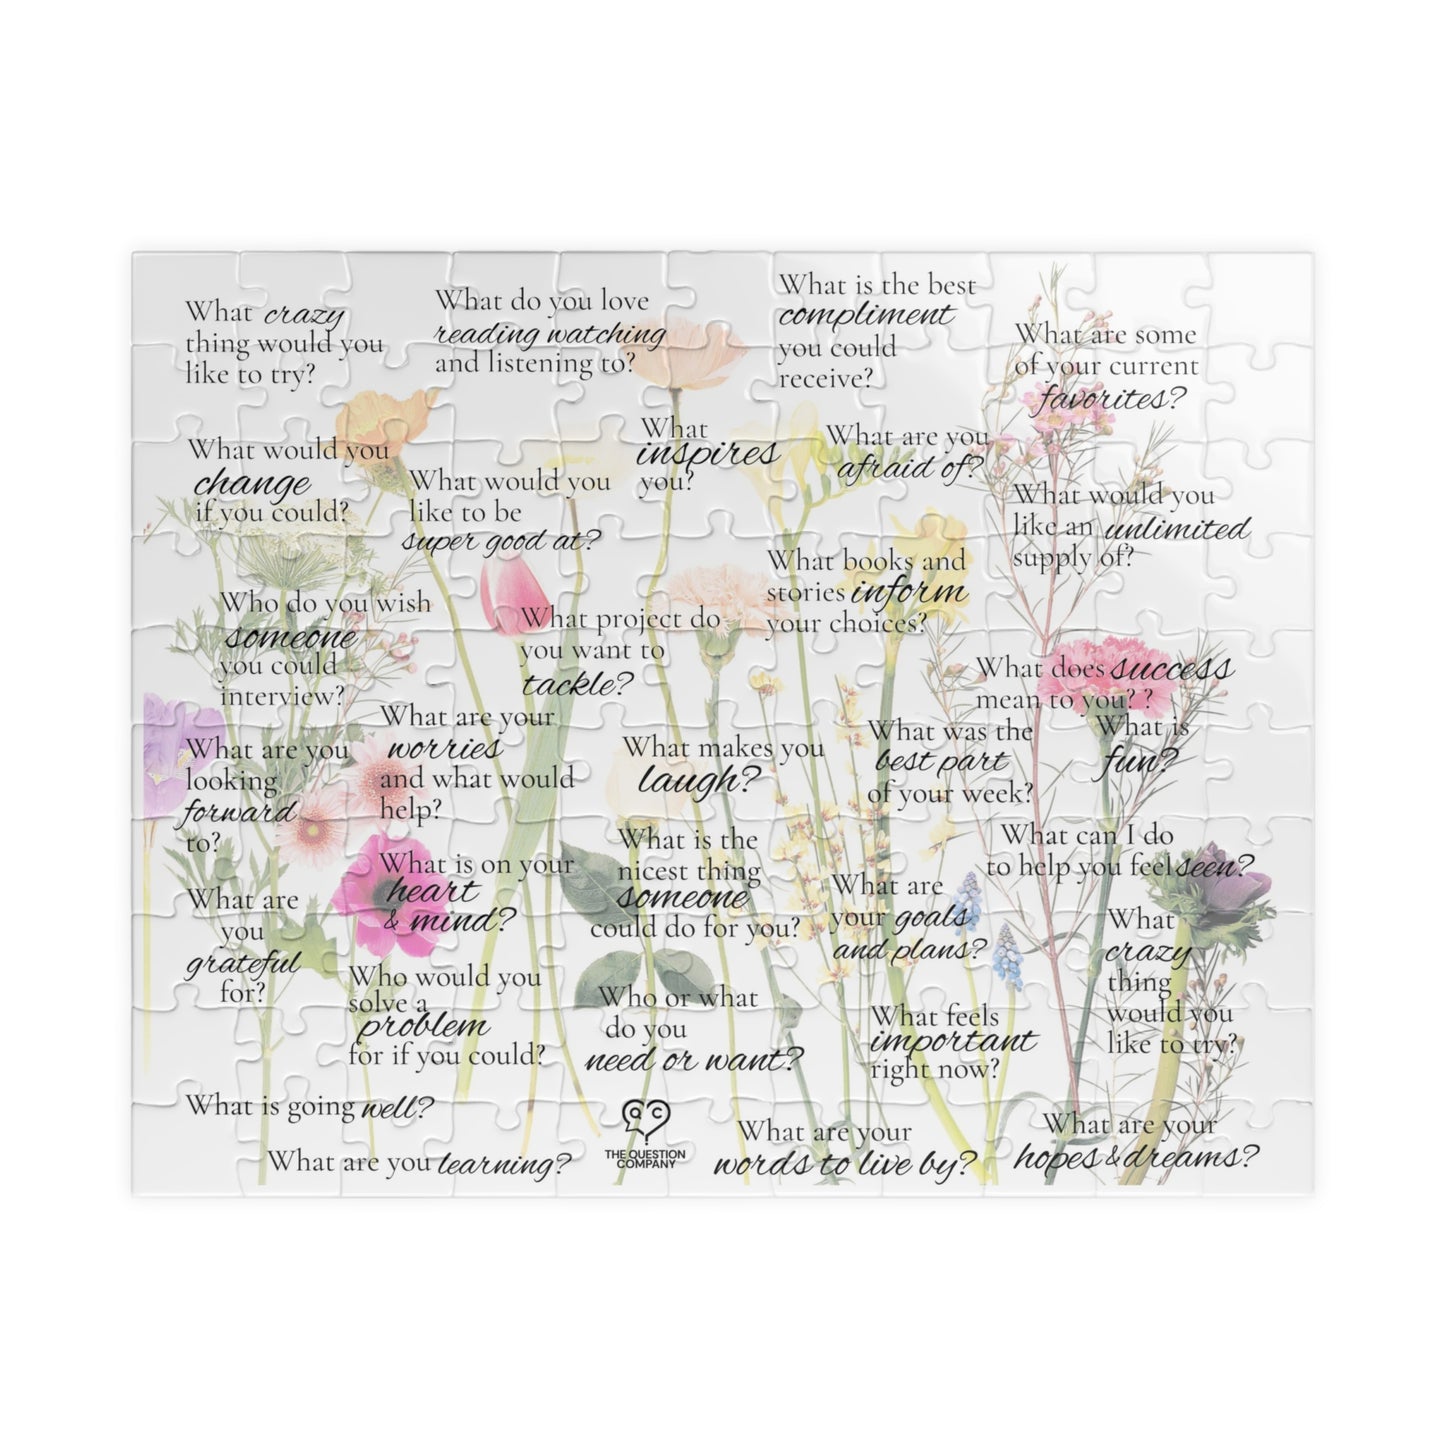 What crazy
thing would you
like to try?
What do you love
reading watching
and listening to?
What is the best
compliment
you could
receive?
What are some
of your current
favorites?
What would you
change
if you could?
What would you
like to be
super good at?
What
inspires
you?
What are you
afraid of?
What would you
like an unlimited
supply of?
What books and
stories inform
your choices?
Who do you wish
someone
you could
interview?
What project do
you want to
tackle?
What does success
mean to you? ?
What are your
worries
and what would
help?
What are you
looking
forward
to?
What makes you
laugh?
What was the
best part
of your week?
What is
fun?
What can I do
to help you feel seen?
What is on your
heart
& mind?
What is the
nicest thing
someone
could do for you?
What are
your goals
and plans?
What are
you
grateful
for?
What
crazy
thing
would you
like to try?
Who would you
solve a
problem
for if you could?
Who or what
do you
need or want?
What feels
important
right now?
What is going well?
What are you learning?
Q C
THE QUESTION
COMPANY
What are your
words to live by?
What are your
hopes & dreams?